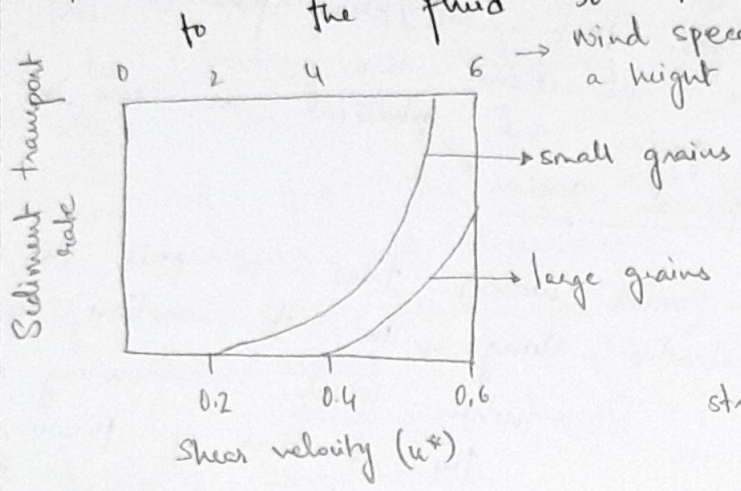 to the fluid
→ wind
a height
0 2 4 6
Sediment transport
rate
small grains
large grains
0.2 0.4 0.6
Shear velocity (u*)